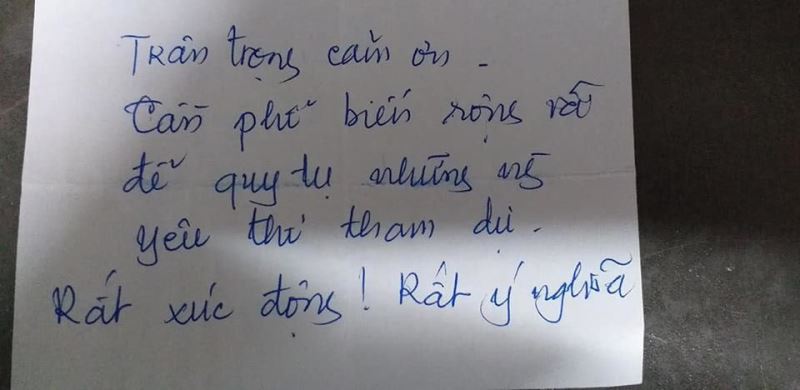 Trân trọng cảm ơn.
Cần phổ biến rộng rãi
để quy tụ những ng
yêu thơ tham dự.
Rất xúc động! Rất ý nghĩa